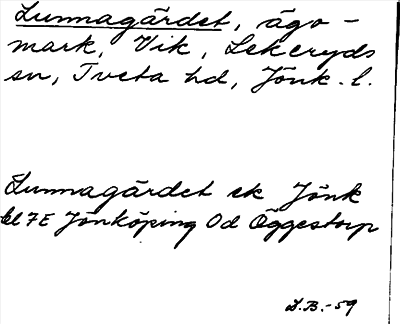 Lunnagärdet, ägo-
mark, Vik, Lekeryds
sn, Tveta hd, Jönk. l.
Lunnagärdet ek Jönk
bl 7E Jönköping Od Öggestorp
L.B.-59